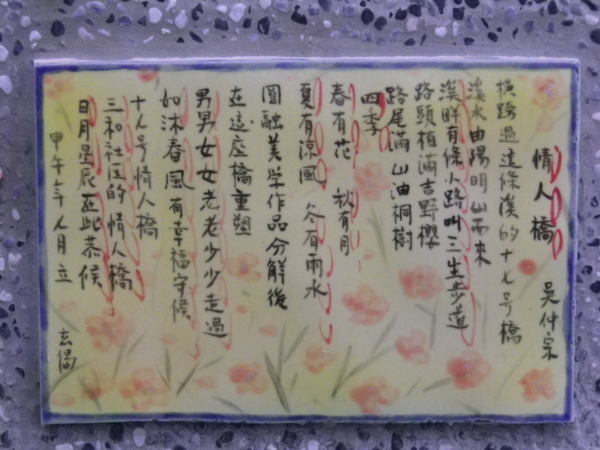 情人橋 吳仲宗
橫跨過這條溪的十八号橋
溪水由陽明山而來
溪畔有條小路叫三生步道
路頭植滿吉野櫻
路尾滿山油桐樹
四季
春有花 秋有月
夏有涼風 冬有雨水
圓融美学作品分解後
在這座橋重塑
男男女女老老少少走過
如沐春風有幸福守候
十八号情人橋
三和社区的情人橋
日月星辰在此恭候
甲午年八月立 玄偈